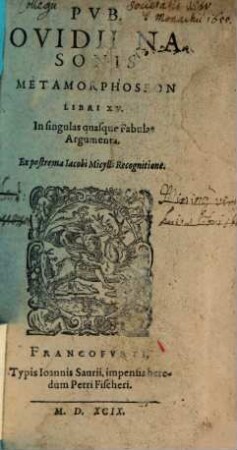 Societatis Jesu
Monachii 1600.
PVB.
OVIDII NA
SONIS
METAMORPHOSEON
LIBRI XV.
In singulas quasque Fabulas
Argumenta.
Ex postrema Iacobi Micylli Recognitione.
FRANCOFVRTI,
Typis Ioannis Saurii, impensis hære-
dum Petri Fischeri.
M. D. XCIX.